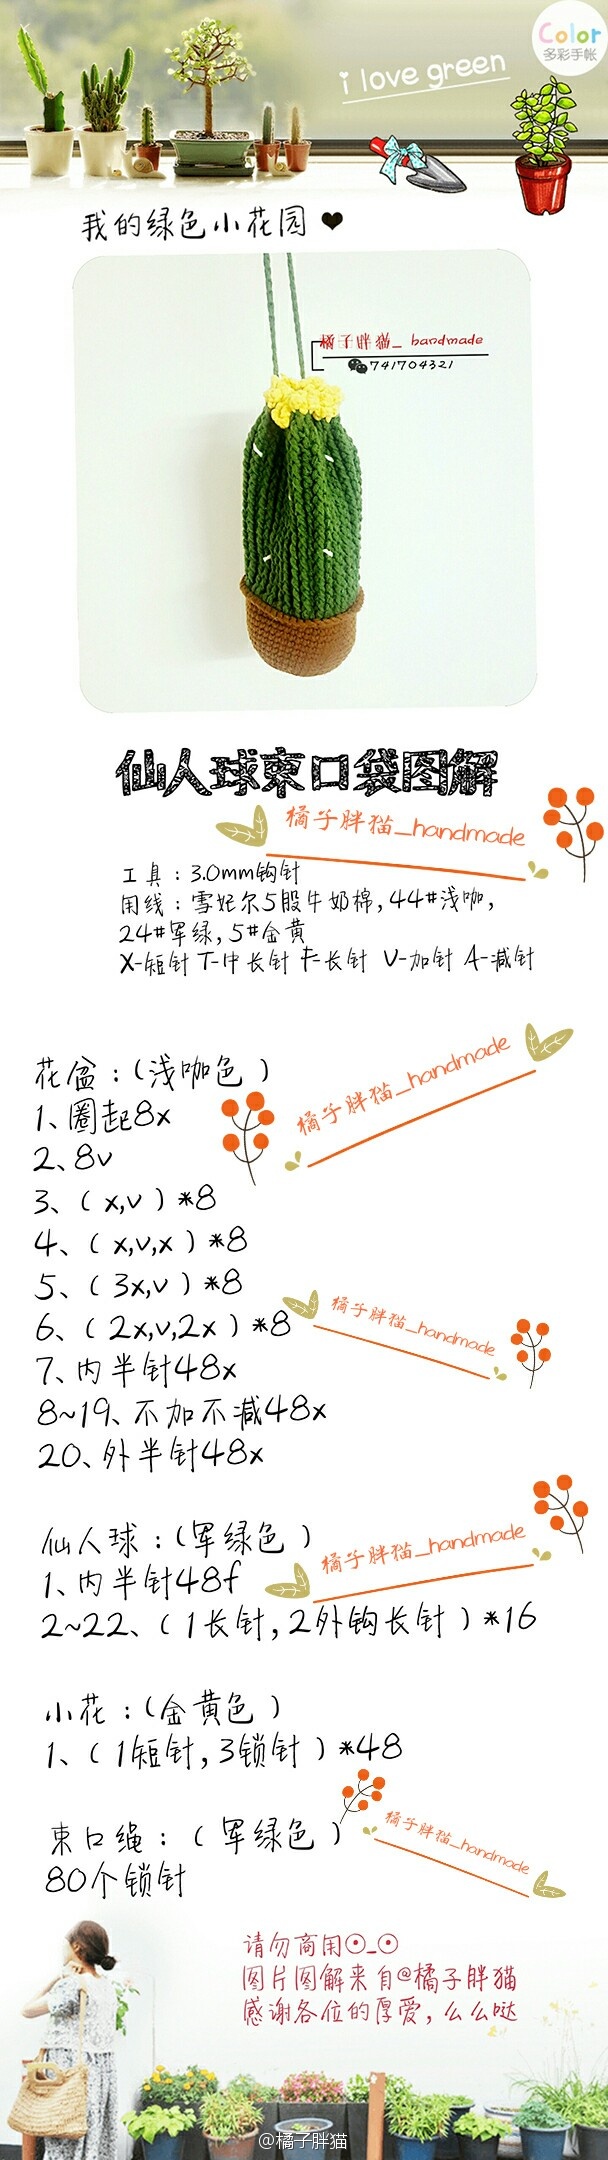 Color
多彩手帐
i love green
我的绿色小花园❤
橘子胖猫_ handmade
741704321
仙人球束口袋图解
橘子胖猫_handmade
工具：3.0mm钩针
用线：雪妃尔5股牛奶棉，44#浅咖，
24#军绿，5#金黄
X-短针 T-中长针 F-长针 V-加针 A-减针
橘子胖猫_handmade
花盆：（浅咖色）
1、圈起8x
2、8v
3、（x,v）*8
4、（x,v,x）*8
5、（3x,v）*8
6、（2x,v,2x）*8
橘子胖猫_handmade
7、内半针48x
8~19、不加不减48x
20、外半针48x
橘子胖猫_handmade
仙人球：（军绿色）
1、内半针48f
2~22、（1长针，2外钩长针）*16
小花：（金黄色）
1、（1短针，3锁针）*48
橘子胖猫_handmade
束口绳：（军绿色）
80个锁针
请勿商用⊙_⊙
图片图解来自@橘子胖猫
感谢各位的厚爱，么么哒
@橘子胖猫